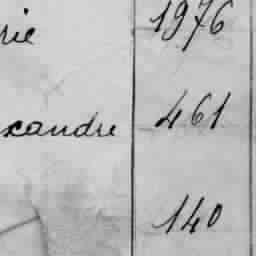 rie 1976
xandre 461
140